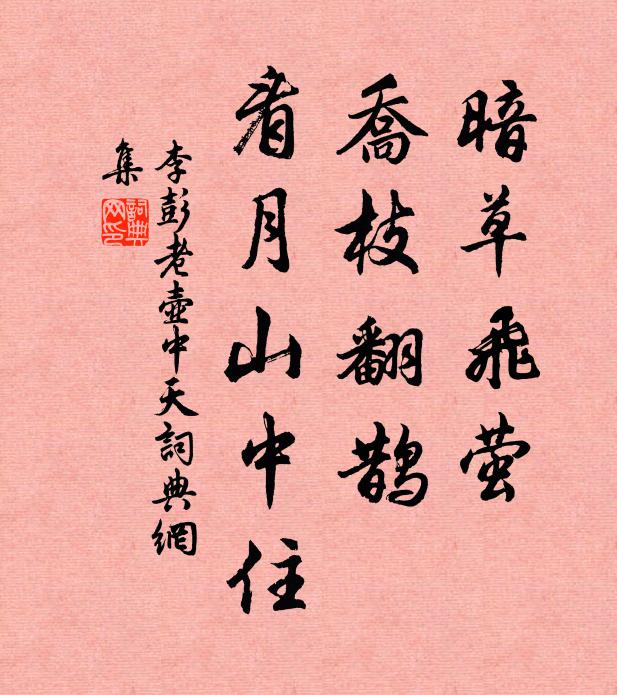 暗草飛萤
喬枝翻鹊
看月山中住
李彭老壺中天詞典網
集
詞典
网印